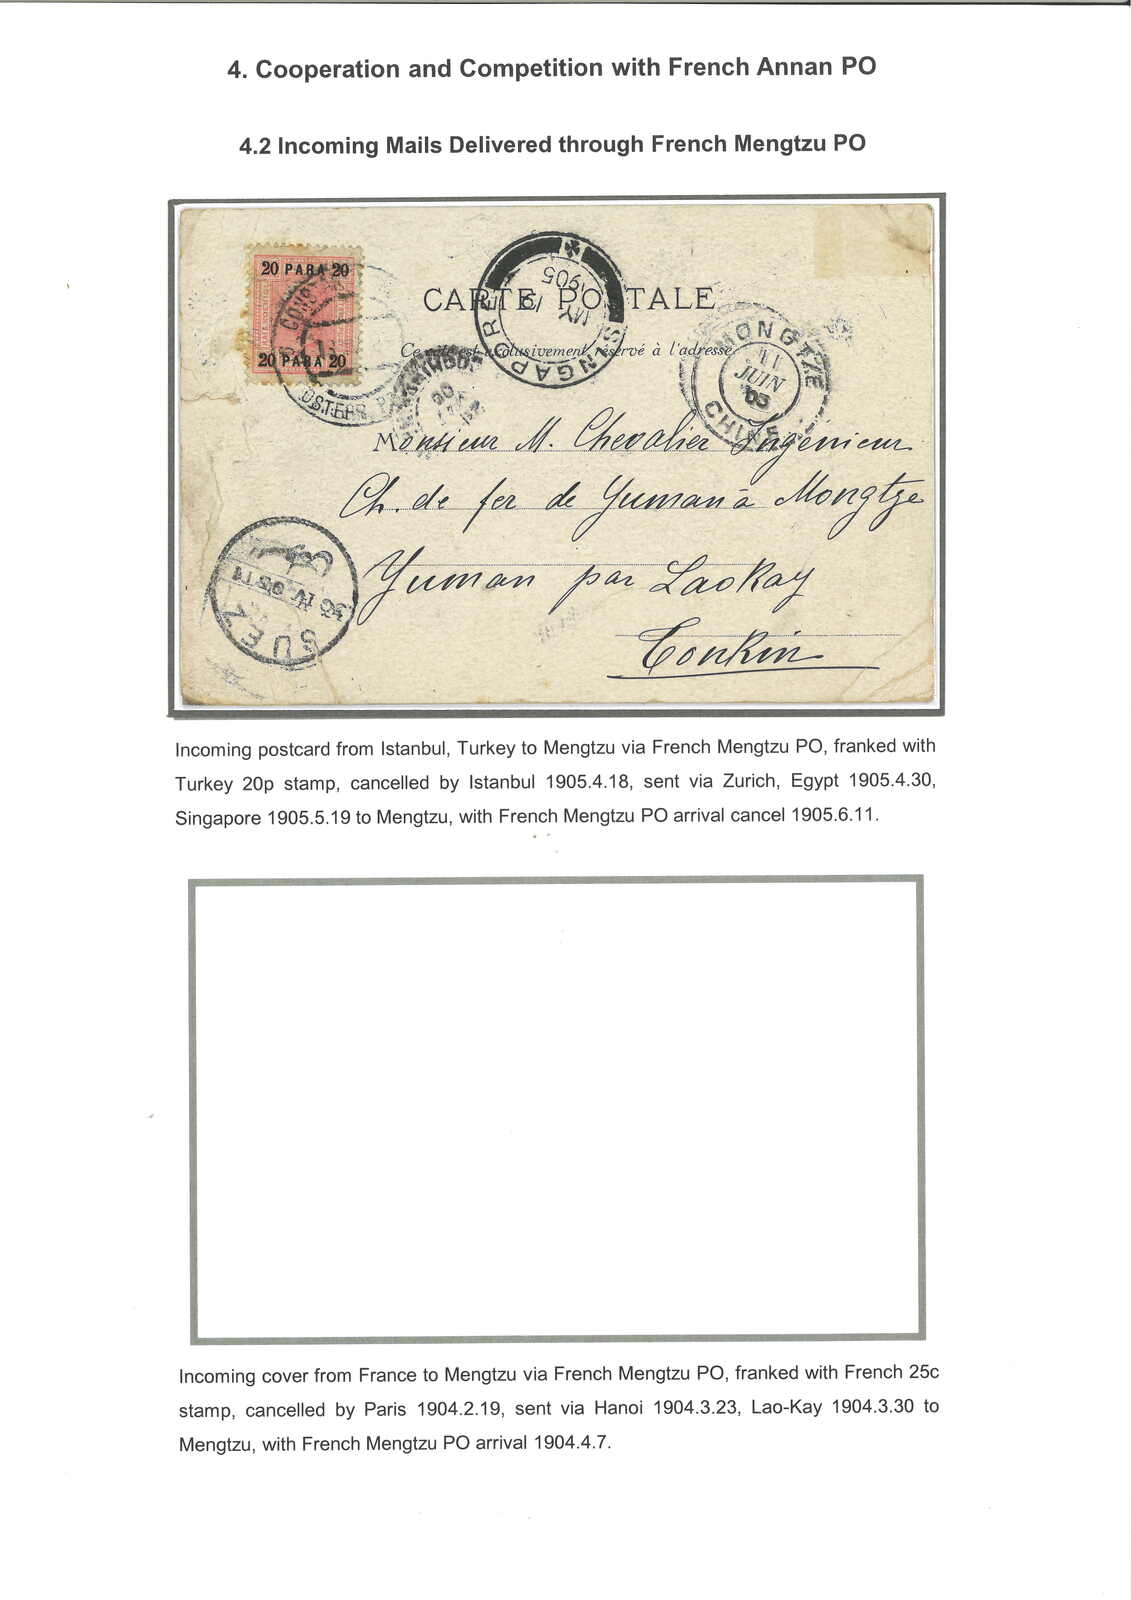 4. Cooperation and Competition with French Annan PO
4.2 Incoming Mails Delivered through French Mengtzu PO
20 PARA 20
20 PARA 20
CARTE POSTALE
Ce côté est exclusivement réservé à l'adresse
SINGAPORE
MY 19
1905
MONGTZE
11
JUIN
05
CHINE
Monsieur M. Chevalier Ingenieur
Ch. de fer de Yunnan à Mongtze
Yunnan par Laokay
Tonkin
SUEZ
Incoming postcard from Istanbul, Turkey to Mengtzu via French Mengtzu PO, franked with
Turkey 20p stamp, cancelled by Istanbul 1905.4.18, sent via Zurich, Egypt 1905.4.30,
Singapore 1905.5.19 to Mengtzu, with French Mengtzu PO arrival cancel 1905.6.11.
Incoming cover from France to Mengtzu via French Mengtzu PO, franked with French 25c
stamp, cancelled by Paris 1904.2.19, sent via Hanoi 1904.3.23, Lao-Kay 1904.3.30 to
Mengtzu, with French Mengtzu PO arrival 1904.4.7.